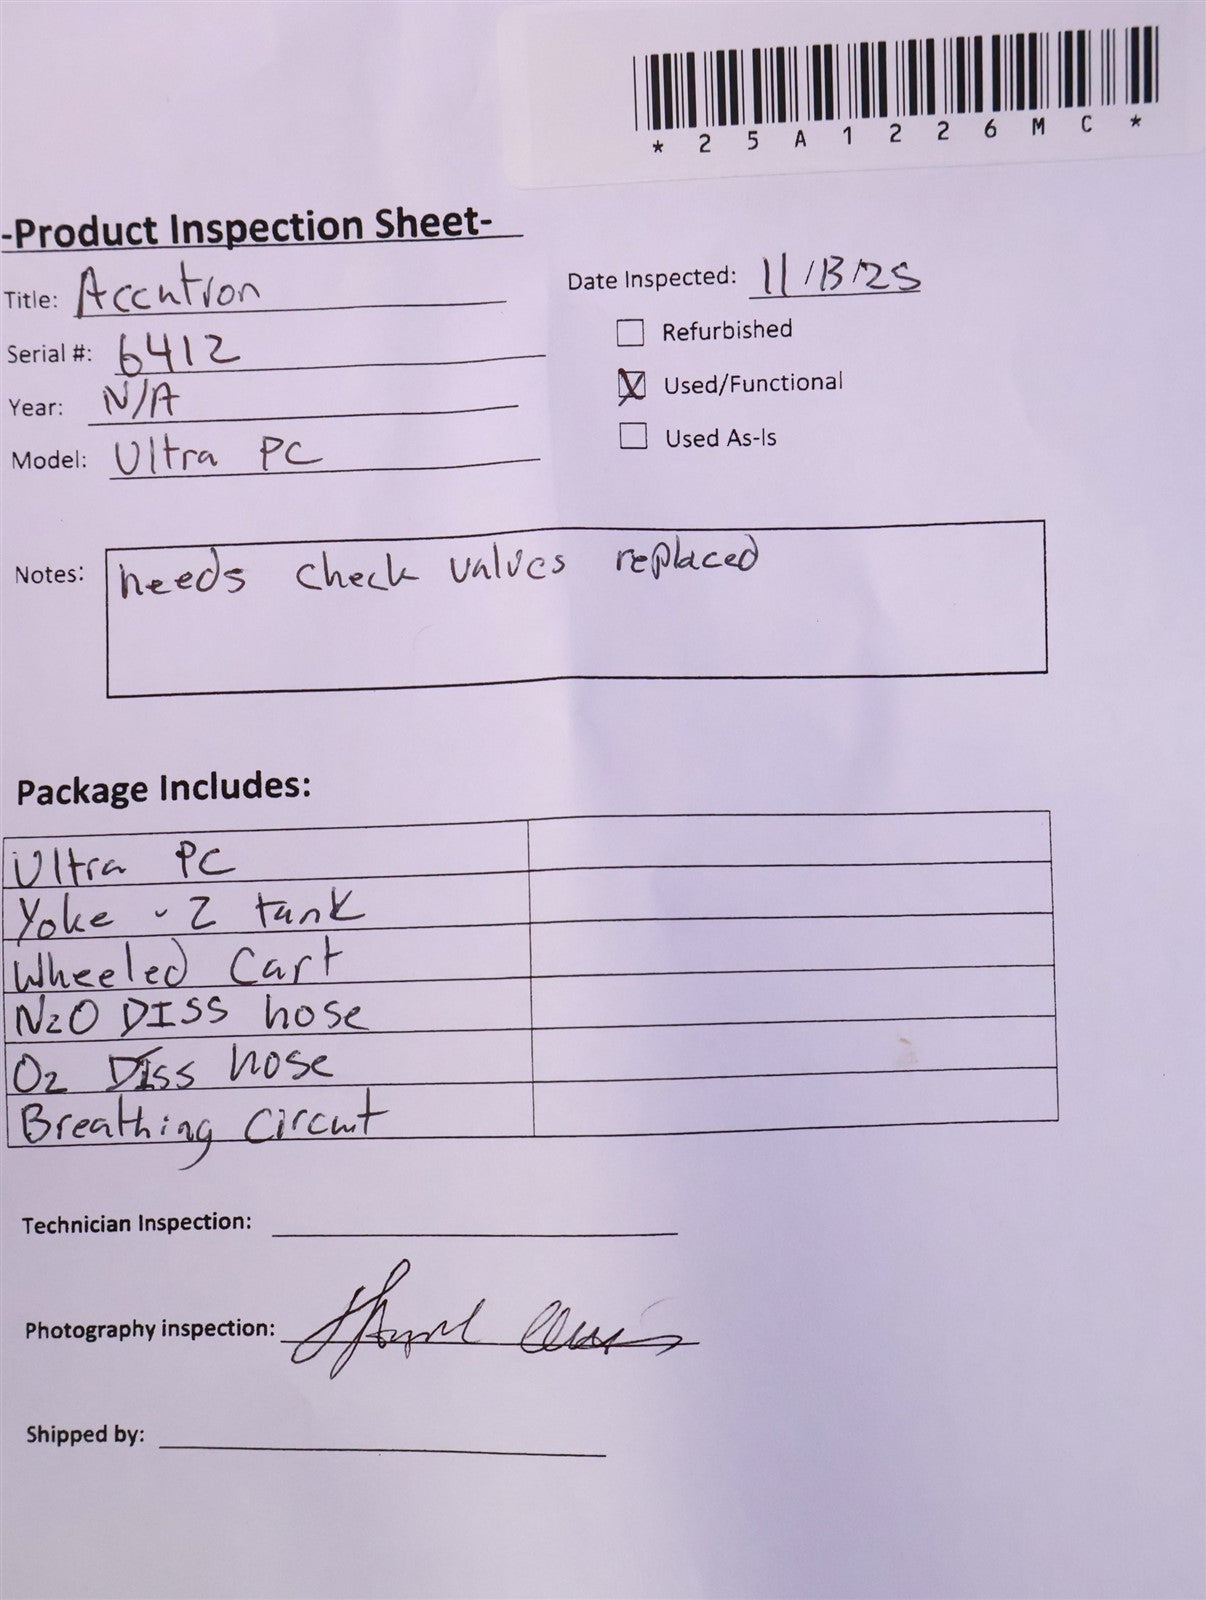 * 2 5 A 1 2 2 6 M C *
-Product Inspection Sheet-
Title: Accutron
Date Inspected: 11/13/25
Serial #: 6412
Refurbished
Year: N/A
Used/Functional
Model: Ultra PC
Used As-Is
Notes: needs check valves replaced
Package Includes:
Ultra PC
Yoke - 2 tank
Wheeled Cart
N2O DISS hose
O2 DISS hose
Breathing Circuit
Technician Inspection:
Photography inspection:
Shipped by: